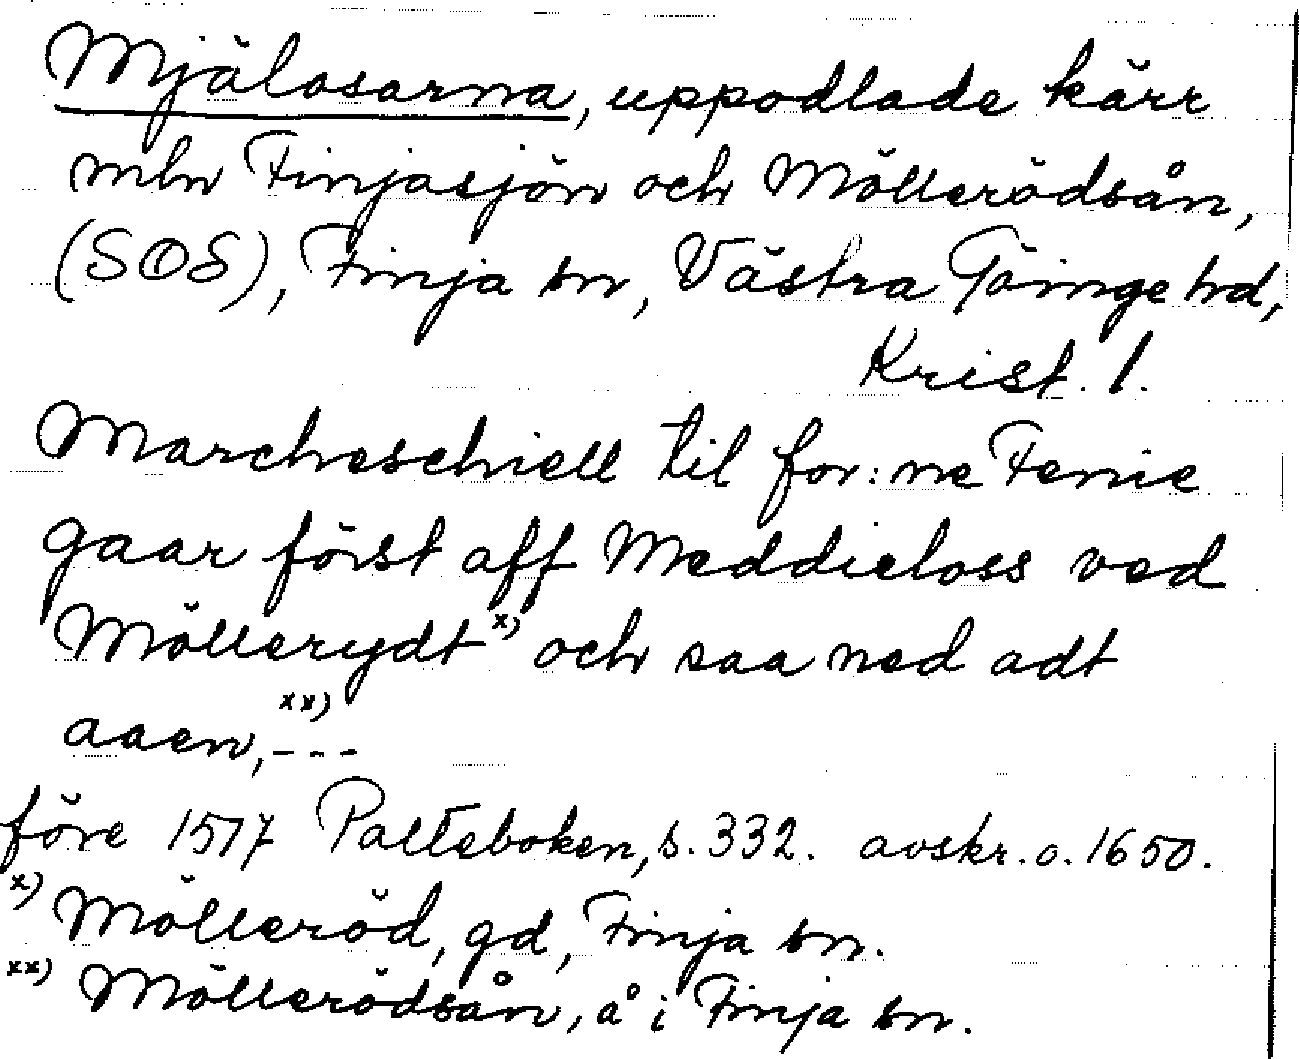 Mjälosarna, uppodlade kärr
mln Finjasjön och Mölleröds­ån,
(SOS), Finja sn, Västra Göinge hd,
Krist. l.
Marcheschiell til for:ne Fenie
gaar först aff Meddieloss ved
Möllerydt x) och saa ned adt
aaen, xx) ---
före 1517 Palteboken, s. 332. avskr. o. 1650.
x) Mölleröd, gd, Finja sn.
xx) Möllerödsån, å i Finja sn.